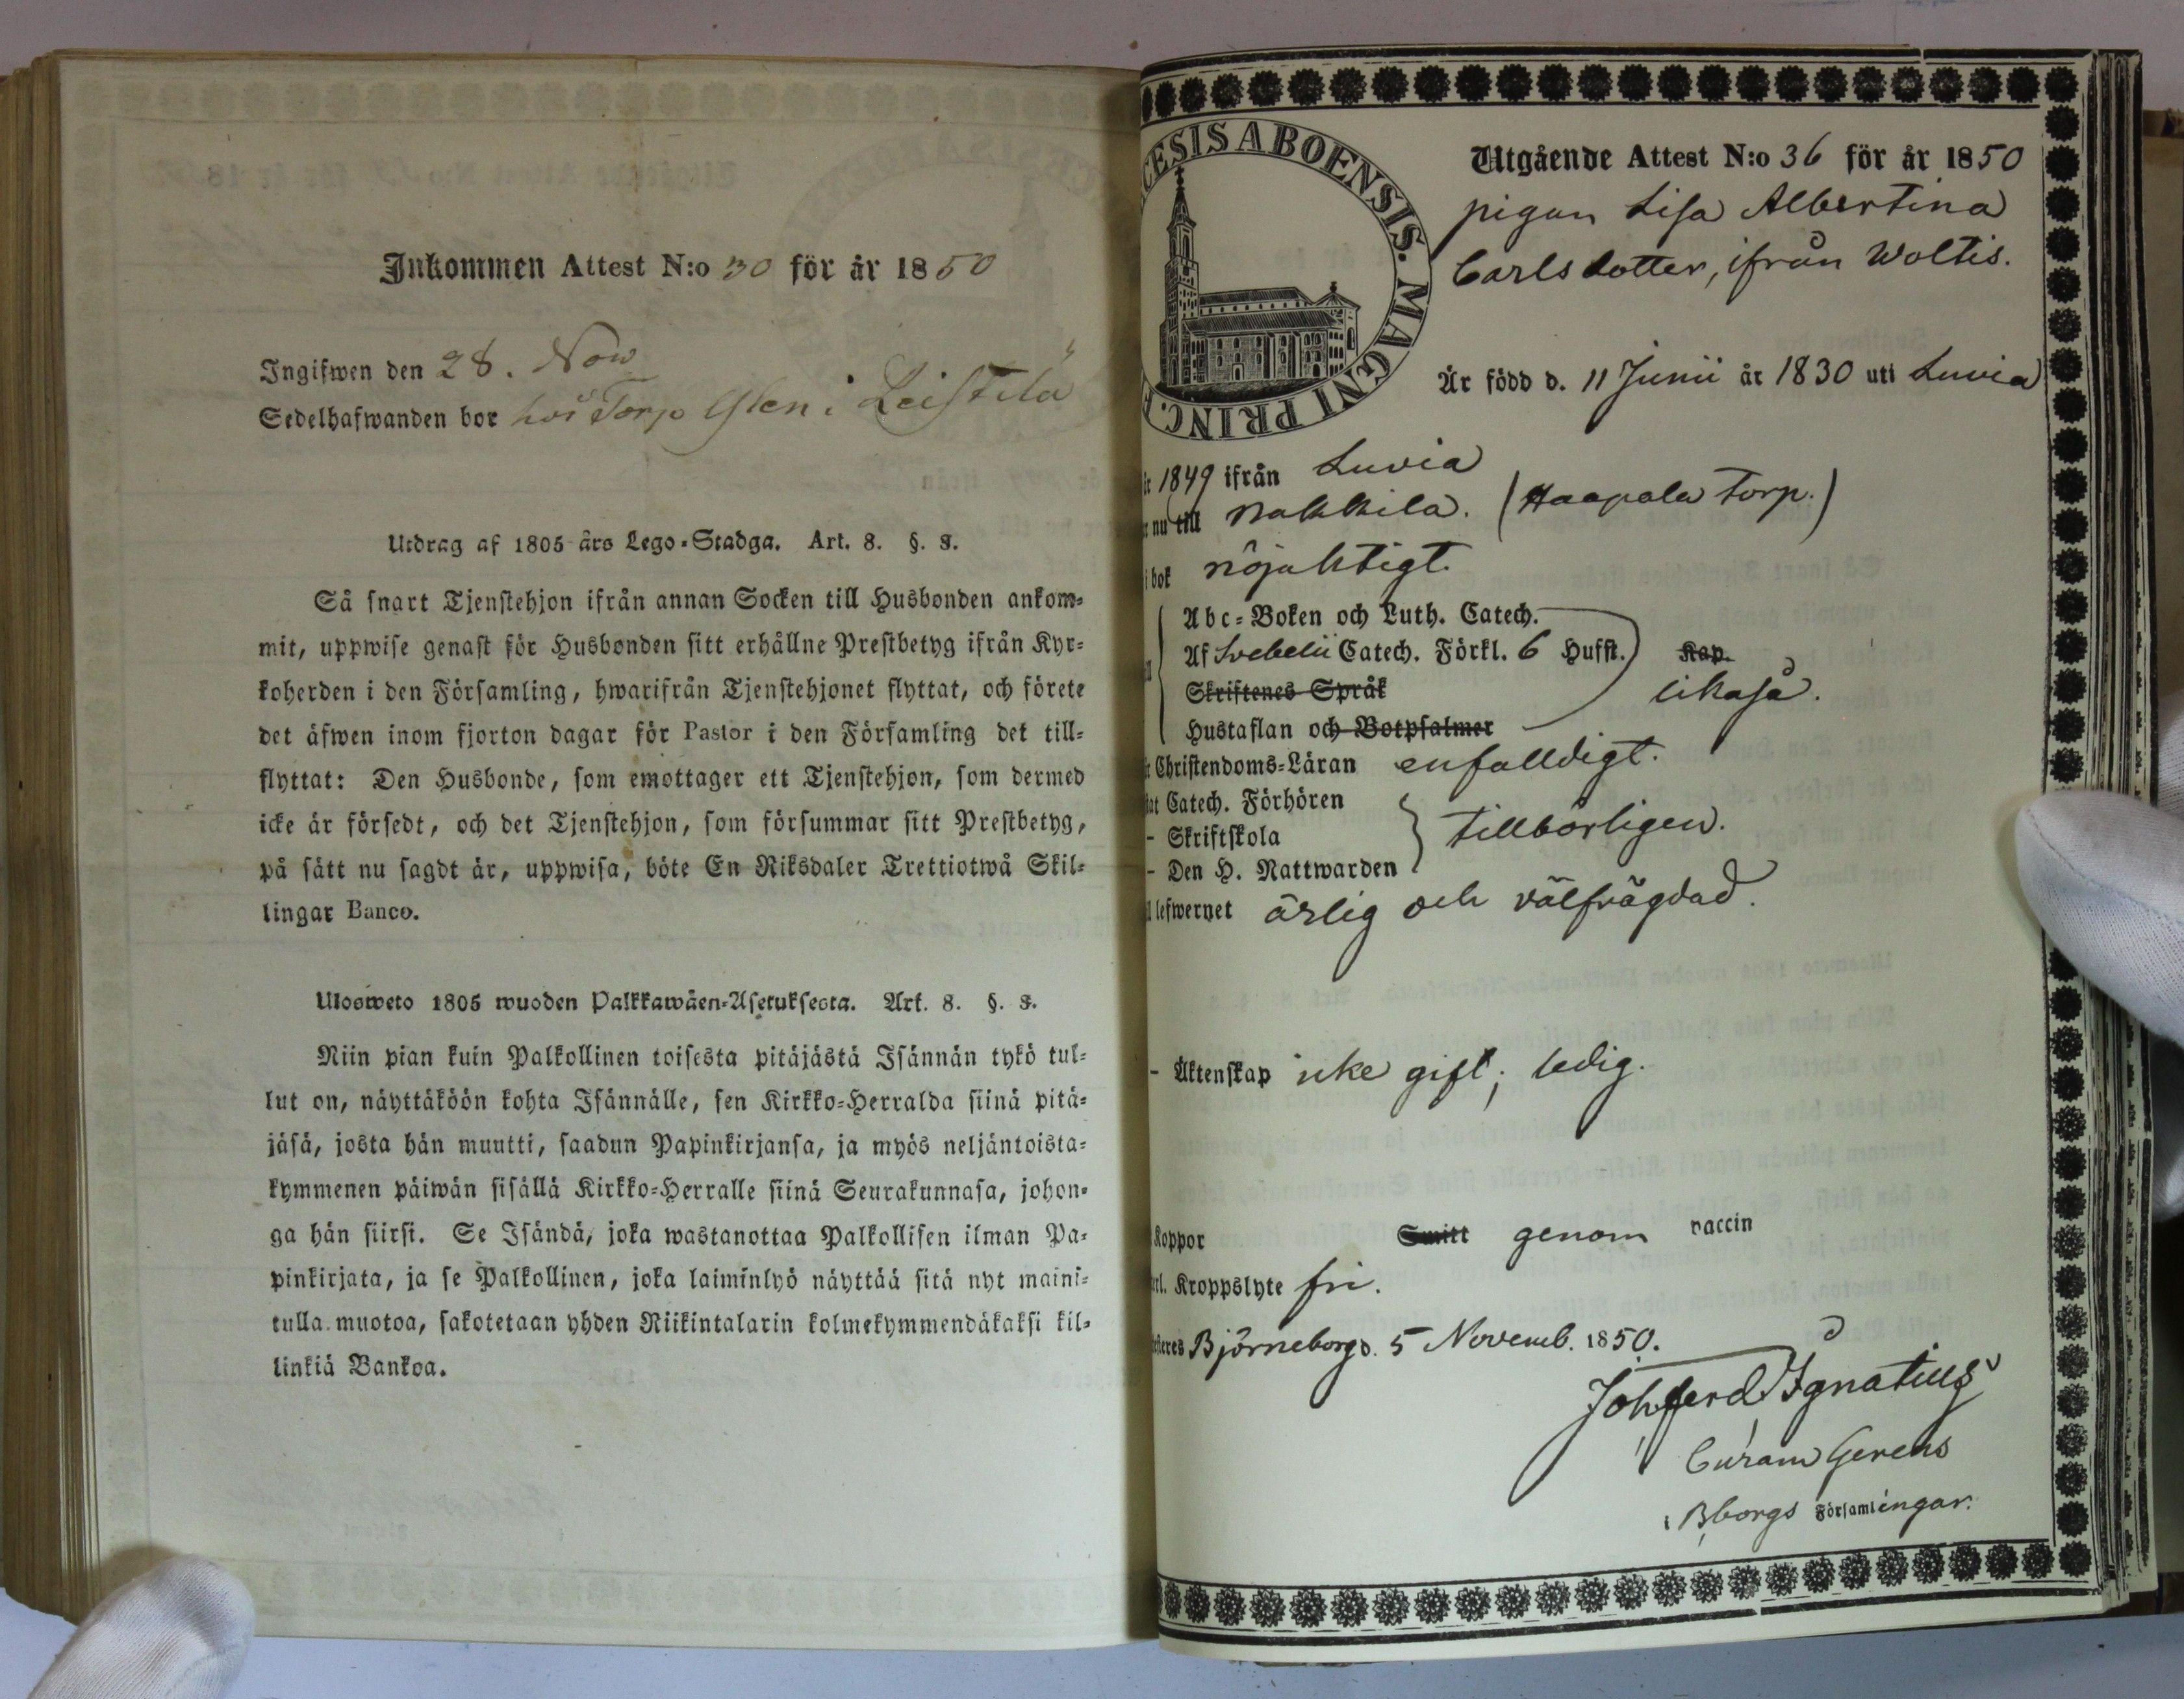 Inkommen Attest N:o 30 för år 1850
Ingifwen den 28. Nov
Sedelhafwanden bor hos Torp i Leistilä
Utdrag af 1805 års Lego-Stadga. Art. 8. §. 8.
Så snart Tjenstehjon ifrån annan Socken till Husbonden ankom-
mit, uppwise genast för Husbonden sitt erhållne Prestbetyg ifrån Kyr-
koherden i den Församling, hwarifrån Tjenstehjonet flyttat, och förete
det äfwen inom fjorton dagar för Pastor i den Församling det till-
flyttat: Den Husbonde, som emottager ett Tjenstehjon, som dermed
icke är försedt, och det Tjenstehjon, som försummar sitt Prestbetyg,
på sätt nu sagdt är, uppwisa, böte En Riksdaler Trettiotwå Skil-
lingar Banco.
Ulosweto 1805 wuoden Palkkawäen-Asetuksesta. Art. 8. §. 8.
Niin pian kuin Palkollinen toisesta pitäjästä Isännän tykö tul-
lut on, näyttäköön kohta Isännälle, sen Kirkko-Herralda siinä pitä-
jäsä, josta hän muutti, saadun Papinkirjansa, ja myös neljäntoista-
kymmenen päiwän sisällä Kirkko-Herralle siinä Seurakunnasa, johon-
ga hän siirsi. Se Isändä, joka wastanottaa Palkollisen ilman Pa-
pinkirjata, ja se Palkollinen, joka laiminlyö näyttää sitä nyt maini-
tulla muotoa, sakotetaan yhden Riikintalarin kolmekymmendäkaksi kil-
linkiä Bankoa.
CESIS ABOENSIS. MAGNI PRINC. F
Utgående Attest N:o 36 för år 1850
pigan Lisa Albertina
Carlsdotter, ifrån Woltis.
Är född d. 11 Junii år 1830 uti Luvia
1849 ifrån Luvia
nu till Nakkila. (Haapala Torp.)
i bok nöjaktigt.
Abc-Boken och Luth. Catech.
Af Svebelii Catech. Förkl. 6 Hufst. Kap.
Skriftenes Språk likaså.
Hustaflan och Botpsalmer
Christendoms-Läran enfalldigt.
Catech. Förhören
- Skriftskola tillbörligen.
- Den H. Nattwarden
lefwernet ärlig och välfrägdad.
- Äktenskap icke gift; ledig.
Koppor Smitt genom vaccin
Kroppslyte fri.
Björneborg d. 5 Novemb. 1850.
Joh ferd Ignatius
Curam Gerens
i Bborgs Församlingar.